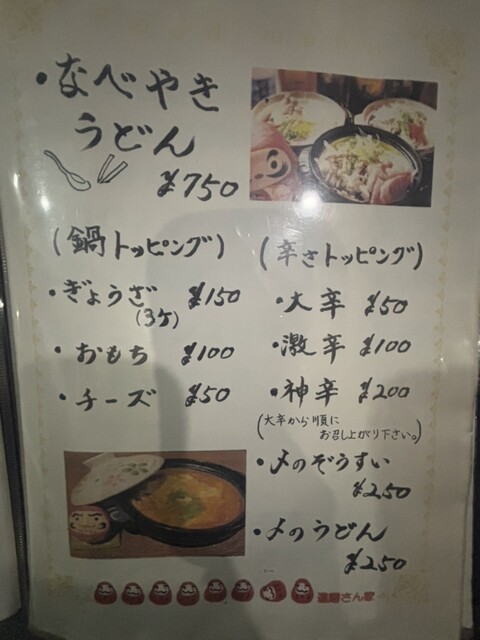 ・なべやき
うどん
¥750
(鍋トッピング)
・ぎょうざ ¥150
(3ケ)
・おもち ¥100
・チーズ ¥50
(辛さトッピング)
・大辛 ¥50
・激辛 ¥100
・神辛 ¥200
(大辛から順に
お召し上がり下さい。)
・〆のぞうすい
¥250
・〆のうどん
¥250
達磨さん家